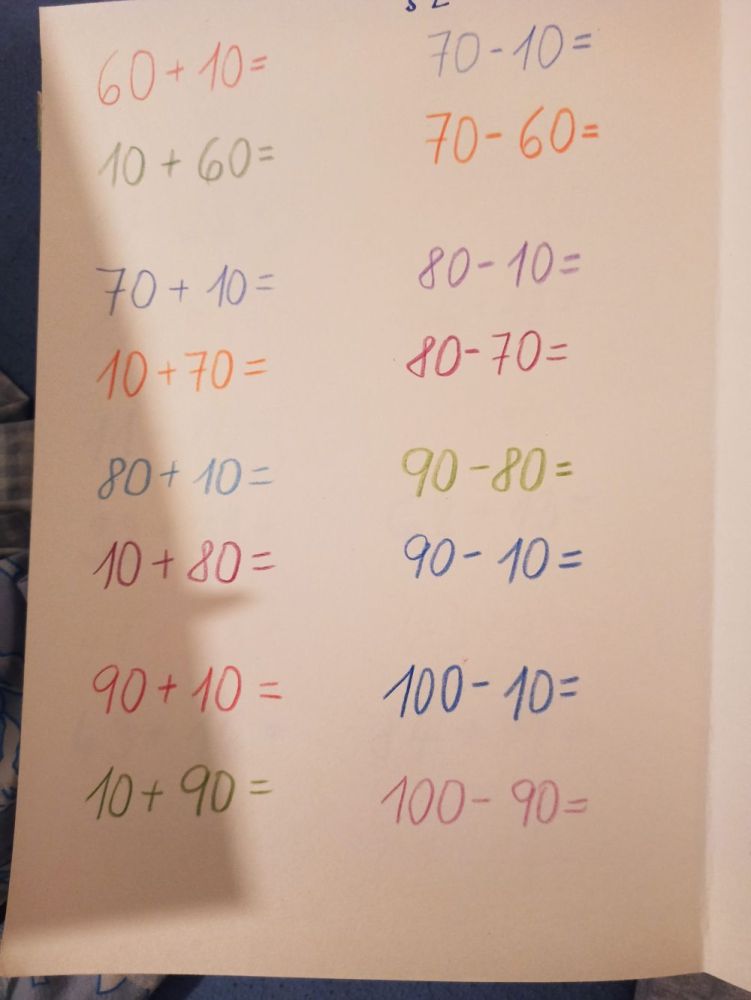 60+10= 70-10=
10+60= 70-60=
70+10= 80-10=
10+70= 80-70=
80+10= 90-80=
10+80= 90-10=
90+10= 100-10=
10+90= 100-90=